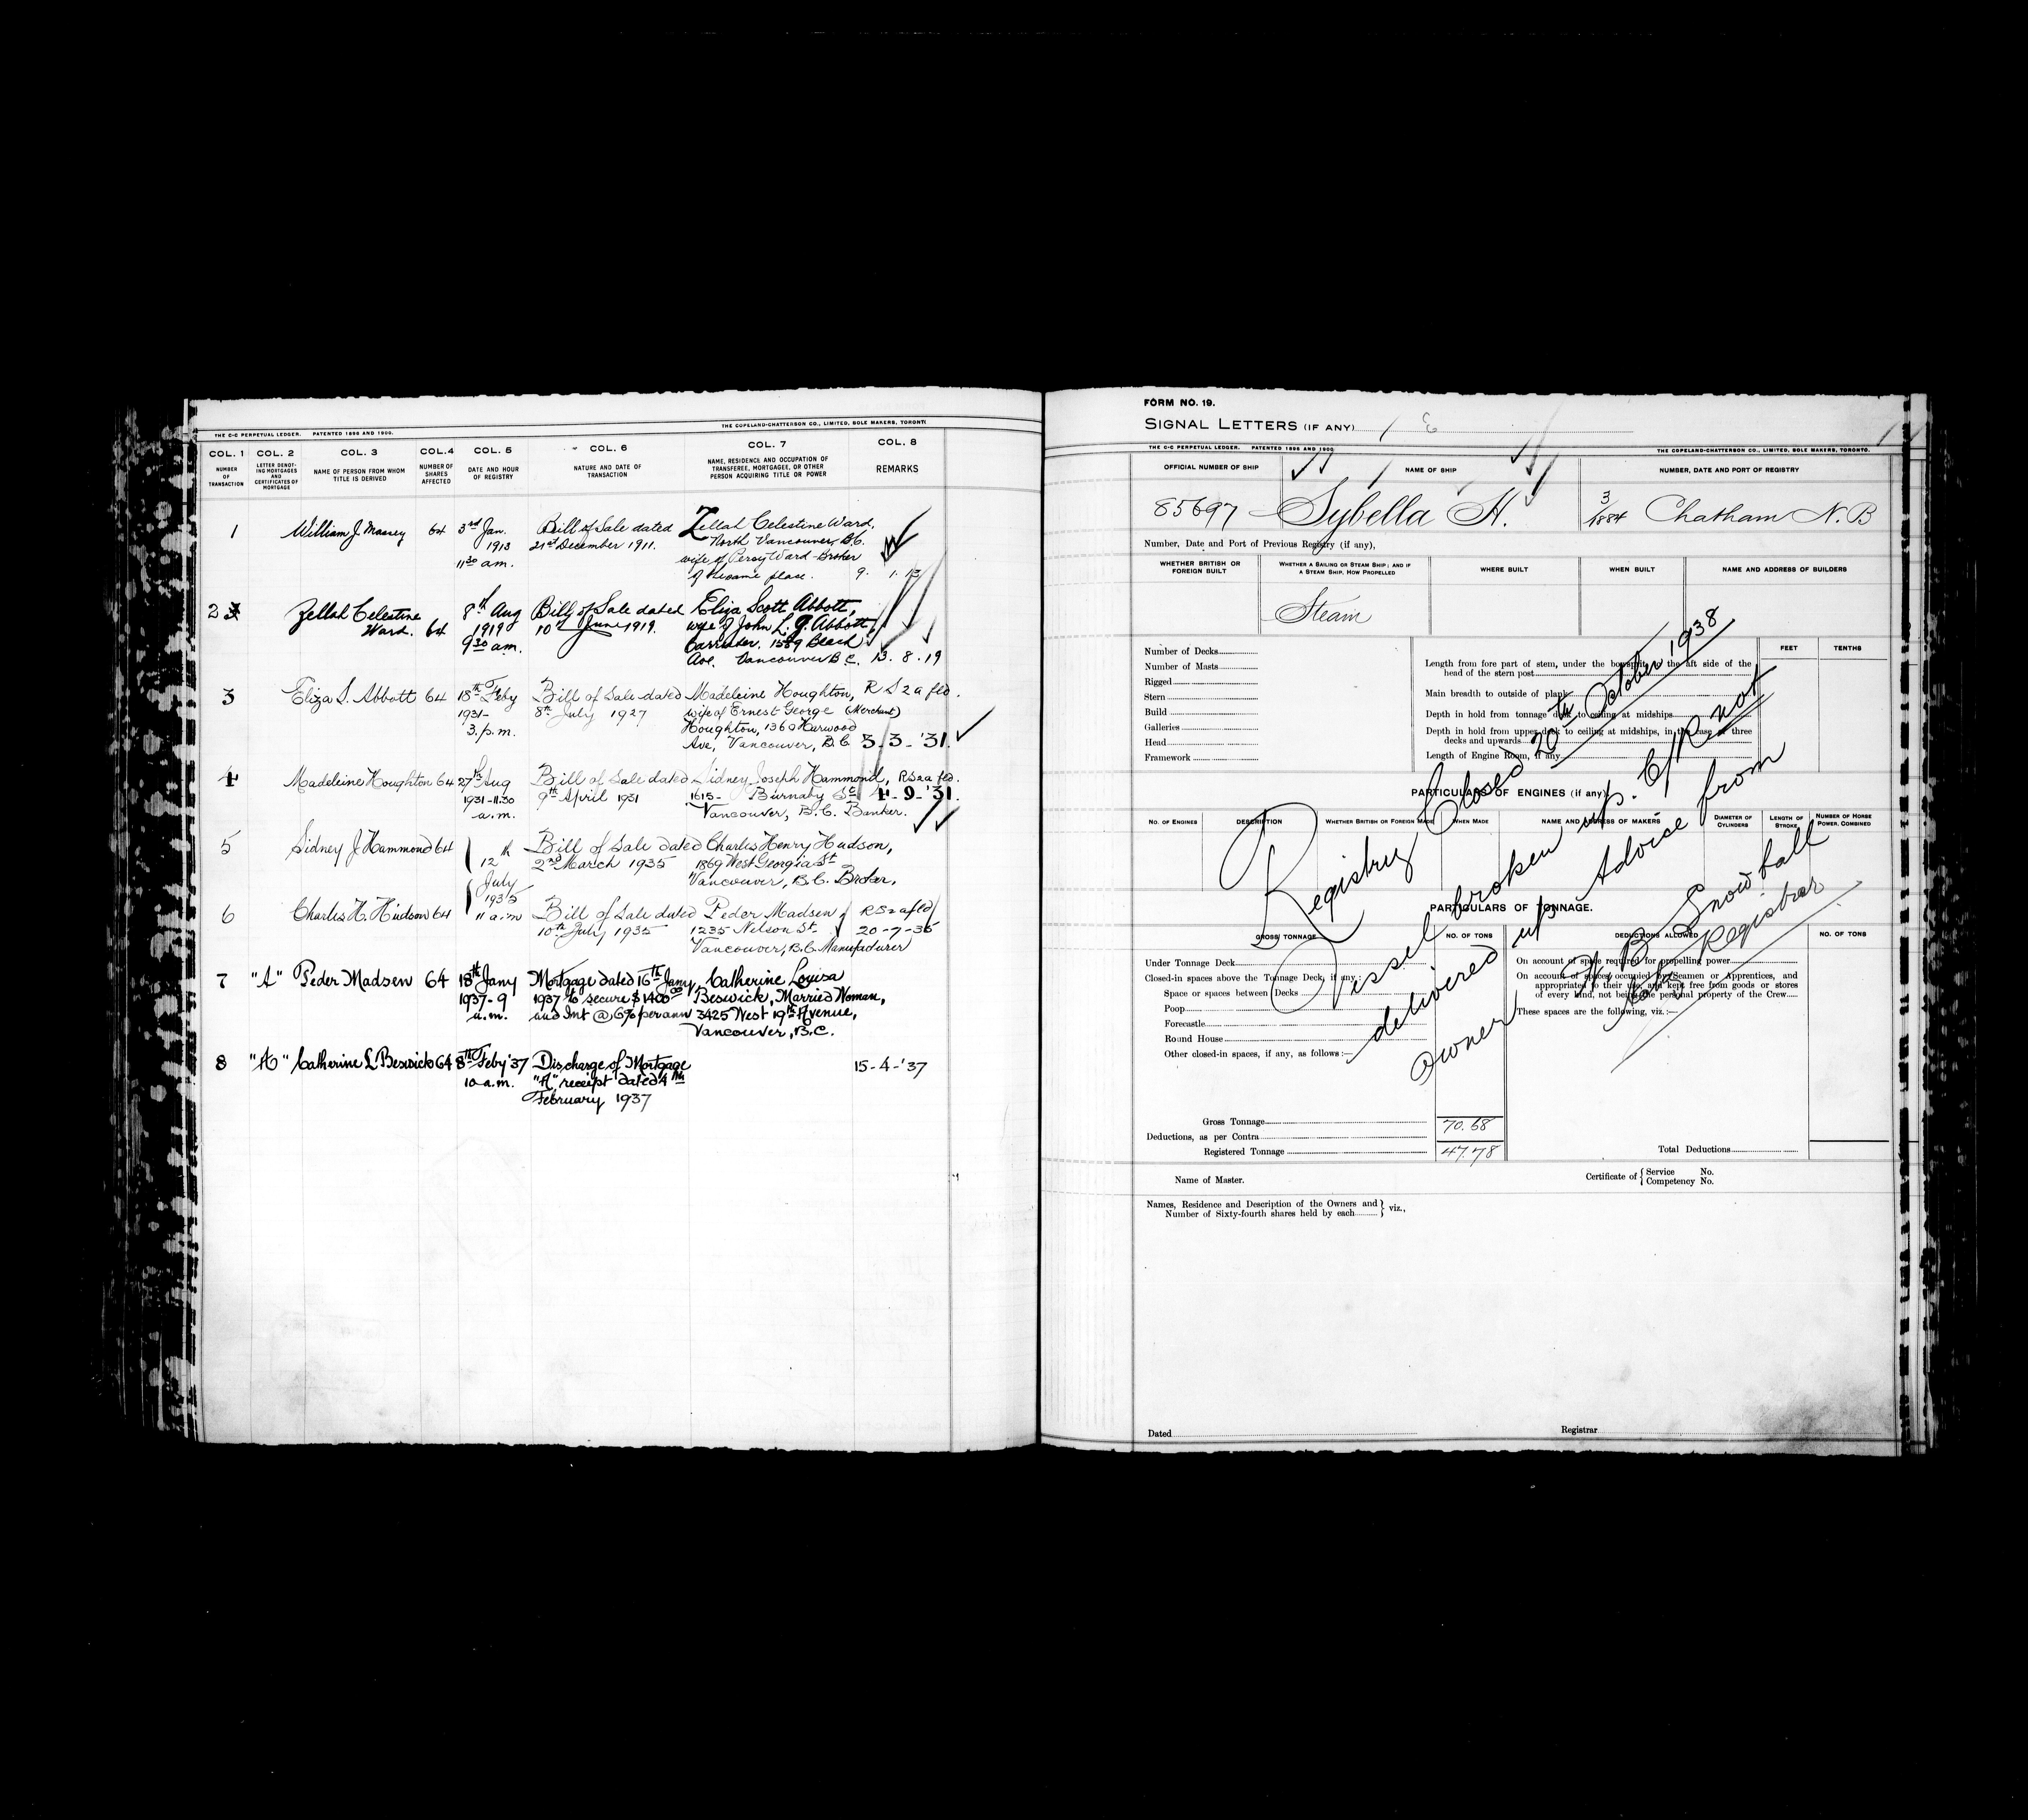 THE C-C PERPETUAL LEDGER. PATENTED 1896 AND 1900. THE COPELAND-CHATTERSON CO., LIMITED, SOLE MAKERS, TORONTO
COL. 1 COL. 2 COL. 3 COL.4 COL. 5 COL. 6 COL. 7 COL. 8
NUMBER OF TRANSACTION
LETTER DENOTING MORTGAGES AND CERTIFICATES OF MORTGAGE
NAME OF PERSON FROM WHOM TITLE IS DERIVED
NUMBER OF SHARES AFFECTED
DATE AND HOUR OF REGISTRY
NATURE AND DATE OF TRANSACTION
NAME, RESIDENCE AND OCCUPATION OF TRANSFEREE, MORTGAGEE, OR OTHER PERSON ACQUIRING TITLE OR POWER
REMARKS
1 William J. Massey 64 3rd Jan. Bill of Sale dated Zellah Celestine Ward,
1913 21st December 1911. North Vancouver, B.C.
11 30 am. wife of Percy Ward - Broker
of same place. 9. 1. 13
2 Zellah Celestine 8th Aug Bill of Sale dated Eliza Scott Abbott,
Ward. 64 1919 10th June 1919. wife of John L. G. Abbott,
9 30 am. Barrister. 1589 Beach
Ave. Vancouver B.C. 13. 8. 19
3 Eliza S. Abbott 64 18th Feby Bill of Sale dated Madeleine Houghton, R S 2a fld.
1931- 8th July 1927 wife of Ernest George (Merchant)
3. p.m. Houghton, 1360 Harwood
Ave, Vancouver, B.C. 3-3-'31.
4 Madeleine Houghton 64 27th Aug Bill of Sale dated Sidney Joseph Hammond, RS2a fld.
1931-11.30 9th April 1931 1615- Burnaby St 4-9-'31.
a.m. Vancouver, B.C. Banker.
5 Sidney J Hammond 64 12th Bill of Sale dated Charles Henry Hudson,
2nd March 1935 1869 West Georgia St
July Vancouver, B.C. Broker,
1935
6 Charles H. Hudson 64 11 a.m Bill of Sale dated Peder Madsen RS2afld
10th July 1935 1235 Nelson St. 20-7-35
Vancouver, B.C. Manufacturer
7 "A" Peder Madsen 64 18th Jany Mortgage dated 15th Jany, Catherine Louisa
1937-9 1937 to secure $1400 00 Beswick, Married Woman,
a.m. and Int @ 6% per ann 3425 West 19th Avenue,
Vancouver, B.C.
8 "A" Catherine L. Beswick 64 8th Feby '37 Discharge of Mortgage 15-4-'37
10 a.m. "A", receipt dated 4th
February 1937
FORM NO. 19.
SIGNAL LETTERS (IF ANY)
THE C-C PERPETUAL LEDGER. PATENTED 1896 AND 1900 THE COPELAND-CHATTERSON CO., LIMITED, SOLE MAKERS, TORONTO.
OFFICIAL NUMBER OF SHIP NAME OF SHIP NUMBER, DATE AND PORT OF REGISTRY
85697 Sybella H. 3/1884 Chatham N.B
Number, Date and Port of Previous Registry (if any),
WHETHER BRITISH OR FOREIGN BUILT
WHETHER A SAILING OR STEAM SHIP; AND IF A STEAM SHIP, HOW PROPELLED
WHERE BUILT WHEN BUILT NAME AND ADDRESS OF BUILDERS
Steam
FEET TENTHS
Number of Decks
Number of Masts
Rigged
Stern
Build
Galleries
Head
Framework
Length from fore part of stem, under the bowsprit, to the aft side of the
head of the stern post
Main breadth to outside of plank
Depth in hold from tonnage deck to ceiling at midships
Depth in hold from upper deck to ceiling at midships, in the case of three
decks and upwards
Length of Engine Room, if any
PARTICULARS OF ENGINES (if any)
NO. OF ENGINES DESCRIPTION WHETHER BRITISH OR FOREIGN MADE WHEN MADE NAME AND ADDRESS OF MAKERS DIAMETER OF CYLINDERS LENGTH OF STROKE NUMBER OF HORSE POWER, COMBINED
Registry Closed 20th October 1938
Vessel broken up. C/R not
delivered up Advice from
owner
W B Snowball
Registrar
PARTICULARS OF TONNAGE.
GROSS TONNAGE NO. OF TONS DEDUCTIONS ALLOWED NO. OF TONS
Under Tonnage Deck
Closed-in spaces above the Tonnage Deck, if any:
Space or spaces between Decks
Poop
Forecastle
Round House
Other closed-in spaces, if any, as follows:—
On account of space required for propelling power
On account of spaces occupied by Seamen or Apprentices, and
appropriated to their use, and kept free from goods or stores
of every kind, not being the personal property of the Crew
These spaces are the following, viz.:—
Gross Tonnage 70.68
Deductions, as per Contra
Registered Tonnage 47.78
Total Deductions
Name of Master. Certificate of { Service No.
Competency No.
Names, Residence and Description of the Owners and
Number of Sixty-fourth shares held by each } viz.,
Dated Registrar